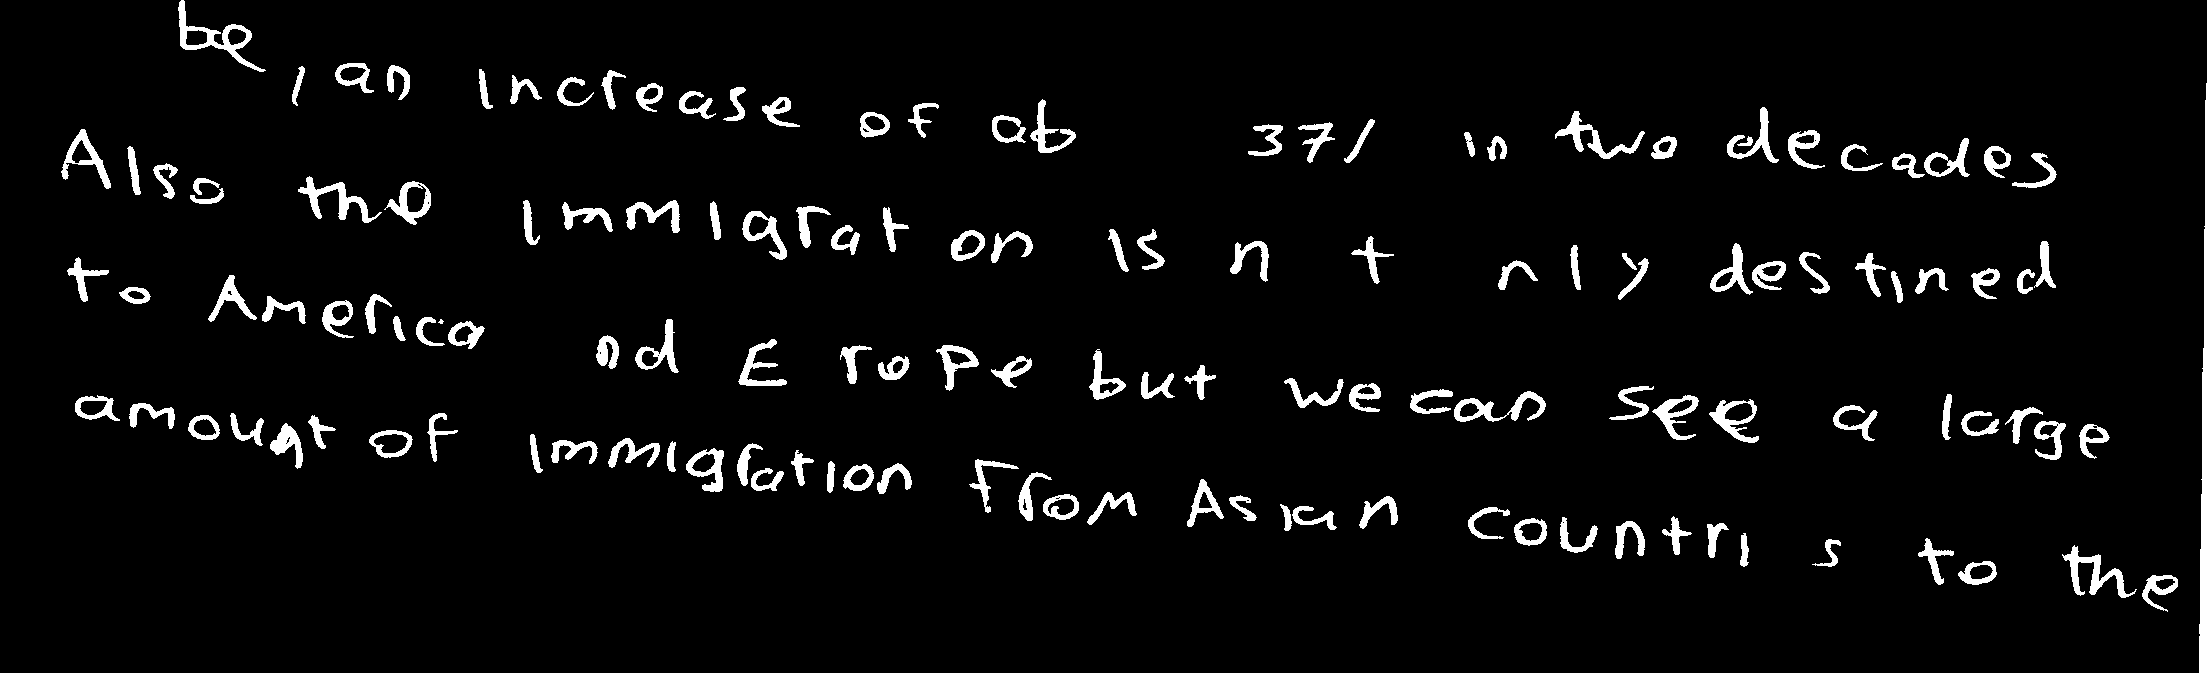 be, an increase of ab 37/ in two decades
Also the immigrat on is n t nly destined
to America nd E rope but we can see a large
amount of immigration from Asian countri s to the